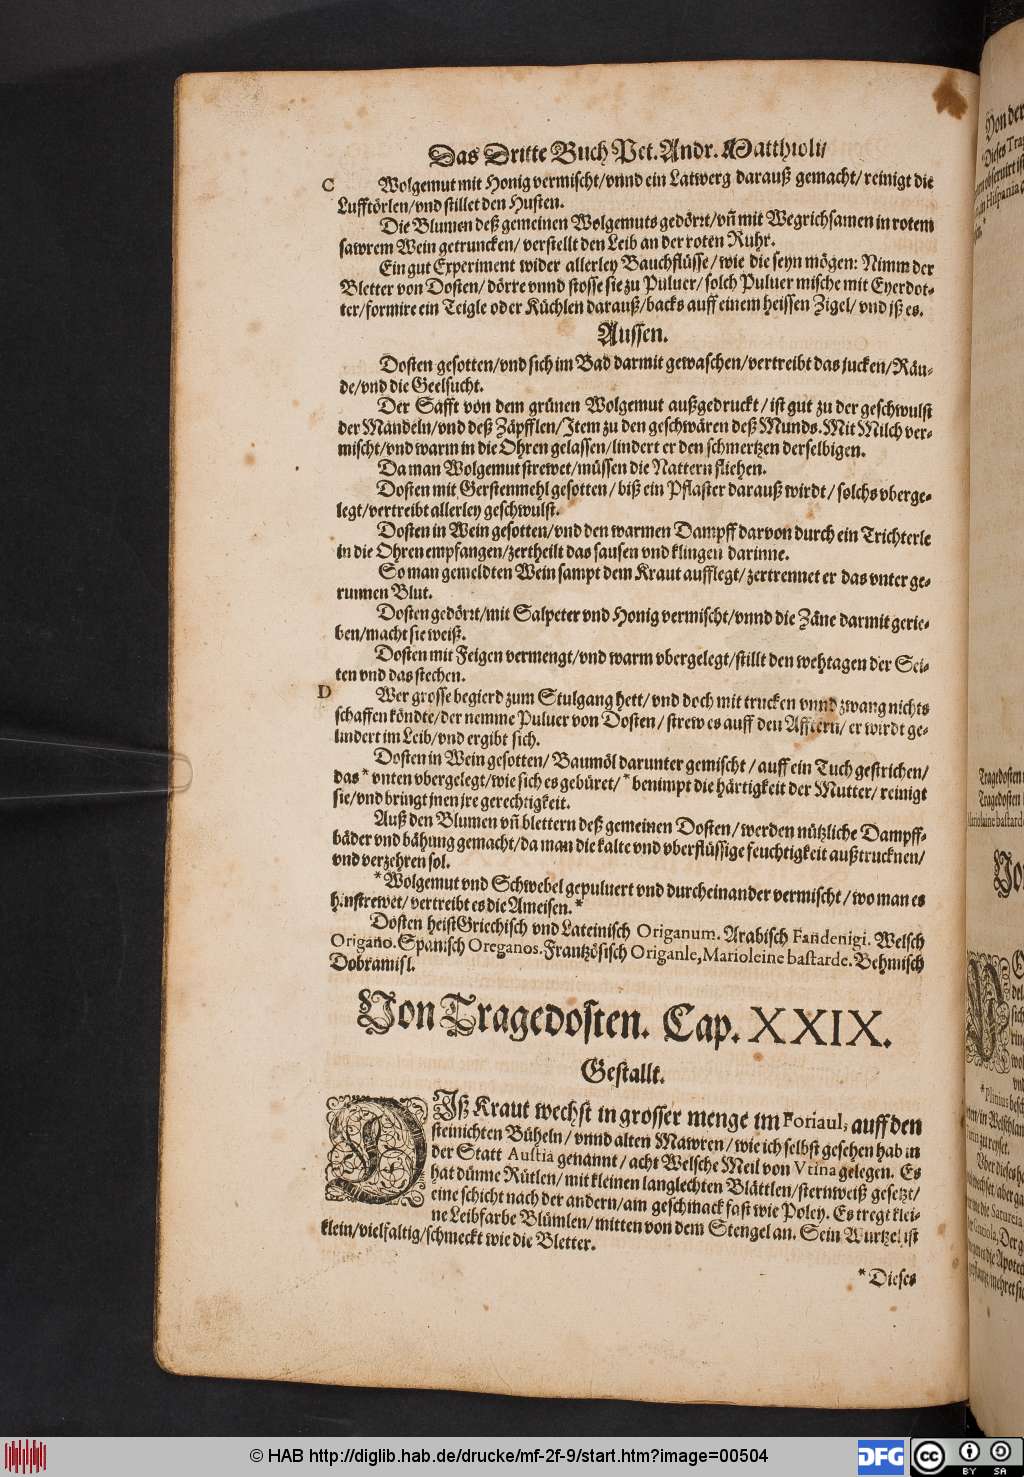 Das Dritte Buch Pet. Andr. Matthioli/
C Wolgemut mit Honig vermischt/vnnd ein Latwerg darauß gemacht/reinigt die
Lufftörlen/vnd stillet den Husten.
Die Blumen deß gemeinen Wolgemuts gedörrt/vñ mit Wegrichsamen in rotem
sawrem Wein getruncken/verstellt den Leib an der roten Ruhr.
Ein gut Experiment wider allerley Bauchflüsse/wie die seyn mögen: Nimm der
Bletter von Dosten/dörre vnnd stosse sie zu Puluer/solch Puluer mische mit Eyerdot-
ter/formire ein Teigle oder Küchlen darauß/backs auff einem heissen Zigel/vnd jß es.
Aussen.
Dosten gesotten/vnd sich im Bad darmit gewaschen/vertreibt das jucken/Räu-
de/vnd die Geelsucht.
Der Safft von dem grünen Wolgemut außgedruckt/ist gut zu der geschwulst
der Mandeln/vnd deß Zäpfflen/Jtem zu den geschwären deß Munds. Mit Milch ver-
mischt/vnd warm in die Ohren gelassen/lindert er den schmertzen derselbigen.
Da man Wolgemut strewet/müssen die Nattern fliehen.
Dosten mit Gerstenmehl gesotten/biß ein Pflaster darauß wirdt/solchs vberge-
legt/vertreibt allerley geschwulst.
Dosten in Wein gesotten/vnd den warmen Dampff darvon durch ein Trichterle
in die Ohren empfangen/zertheilt das sausen vnd klingen darinne.
So man gemeldten Wein sampt dem Kraut aufflegt/zertrennet er das vnter ge-
runnen Blut.
Dosten gedörrt/mit Salpeter vnd Honig vermischt/vnnd die Zäne darmit gerie-
ben/macht sie weiß.
Dosten mit Feigen vermengt/vnd warm vbergelegt/stillt den wehtagen der Sei-
ten vnd das stechen.
D Wer grosse begierd zum Stulgang hett/vnd doch mit trucken vnnd zwang nichts
schaffen köndte/der nemme Puluer von Dosten/strew es auff den Afftern/er wirdt ge-
lindert im Leib/vnd ergibt sich.
Dosten in Wein gesotten/Baumöl darunter gemischt/auff ein Tuch gestrichen/
das * vnten vbergelegt/wie sich es gebüret/* benimpt die härtigkeit der Mutter/reinigt
sie/vnd bringt jnen jre gerechtigkeit.
Auß den Blumen vñ blettern deß gemeinen Dosten/werden nützliche Dampff-
bäder vnd bähung gemacht/da man die kalte vnd vberflüssige feuchtigkeit außtrucknen/
vnd verzehren sol.
* Wolgemut vnd Schwebel gepuluert vnd durcheinander vermischt/wo man es
hinstrewet/vertreibt es die Ameisen. *
Dosten heist Griechisch vnd Lateinisch Origanum. Arabisch Fandenigi. Welsch
Origano. Spanisch Oreganos. Frantzösisch Origanle, Marioleine bastarde. Behmisch
Dobramisl.
Von Tragedosten. Cap. XXIX.
Gestallt.
DJß Kraut wechst in grosser menge im Foriaul, auff den
steinichten Büheln/vnnd alten Mawren/wie ich selbst gesehen hab in
der Statt Austia genannt/acht Welsche Meil von Vtina gelegen. Es
hat dünne Rütlen/mit kleinen langlechten Blättlen/sternweiß gesetzt/
eine schicht nach der andern/am geschmack fast wie Poley. Es tregt klei-
ne Leibfarbe Blümlen/mitten von dem Stengel an. Sein Wurtzel ist
klein/vielfaltig/schmeckt wie die Bletter.
* Dieses
© HAB http://diglib.hab.de/drucke/mf-2f-9/start.htm?image=00504
DFG
cc BY SA